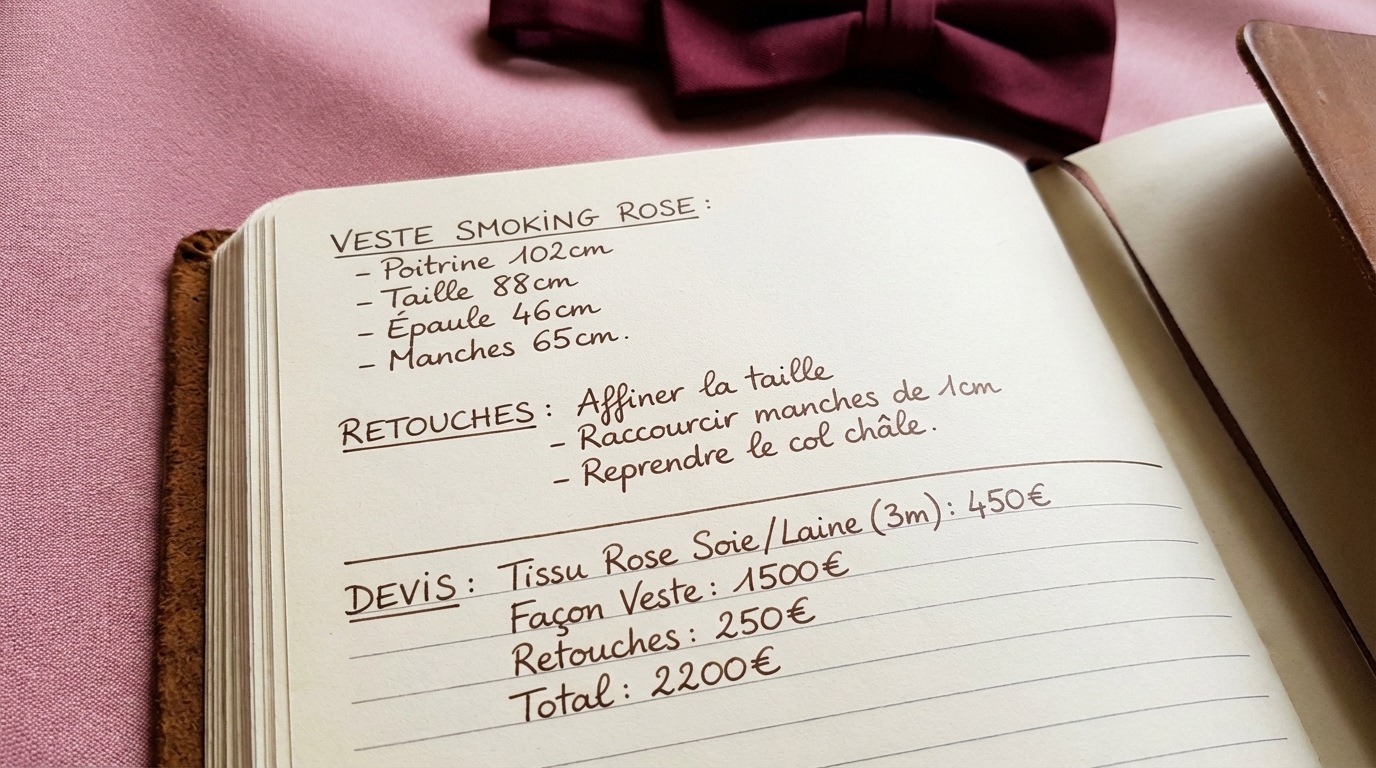 VESTE SMOKING ROSE :
- Poitrine 102cm
- Taille 88cm
- Épaule 46cm
- Manches 65cm.
RETOUCHES : Affiner la taille
- Raccourcir manches de 1cm
- Reprendre le col châle.
DEVIS : Tissu Rose Soie/Laine (3m) : 450€
Façon Veste : 1500€
Retouches : 250€
Total : 2200€